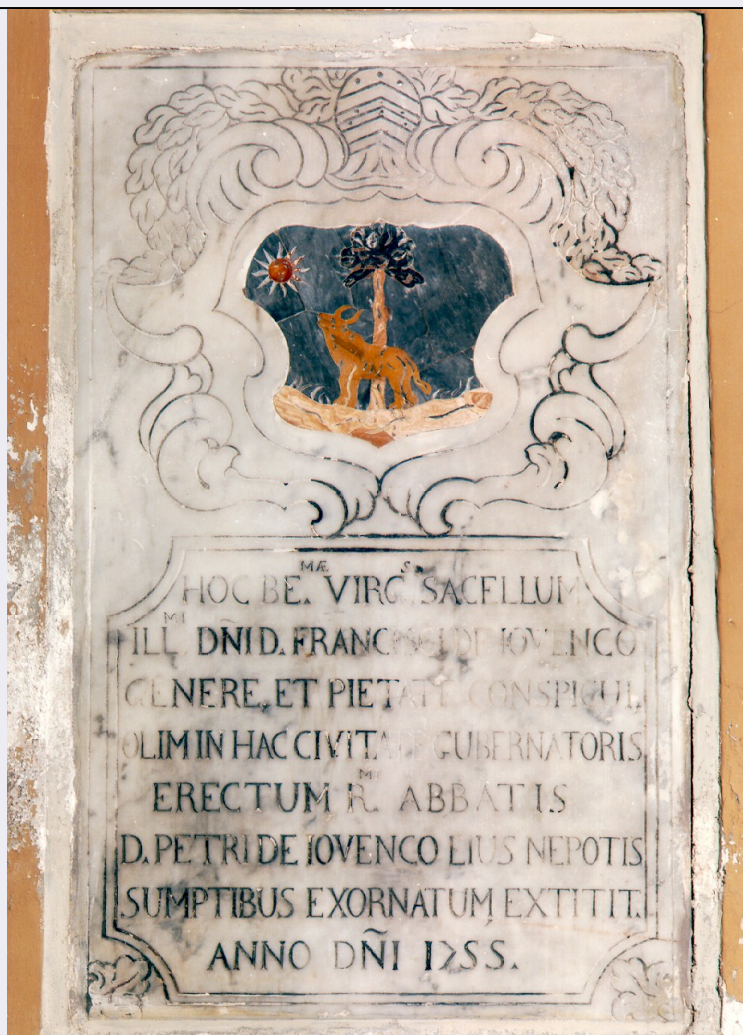 HOC BE.MÆ VIRG.S SACELLUM
ILL.MI DÑI D. FRANCISCI DE IOVENCO
GENERE, ET PIETATE CONSPICUI,
OLIM IN HAC CIVITATE GUBERNATORIS
ERECTUM R.MI ABBATIS
D. PETRI DE IOVENCO LIUS NEPOTIS
SUMPTIBUS EXORNATUM EXTITIT.
ANNO DÑI 1755.